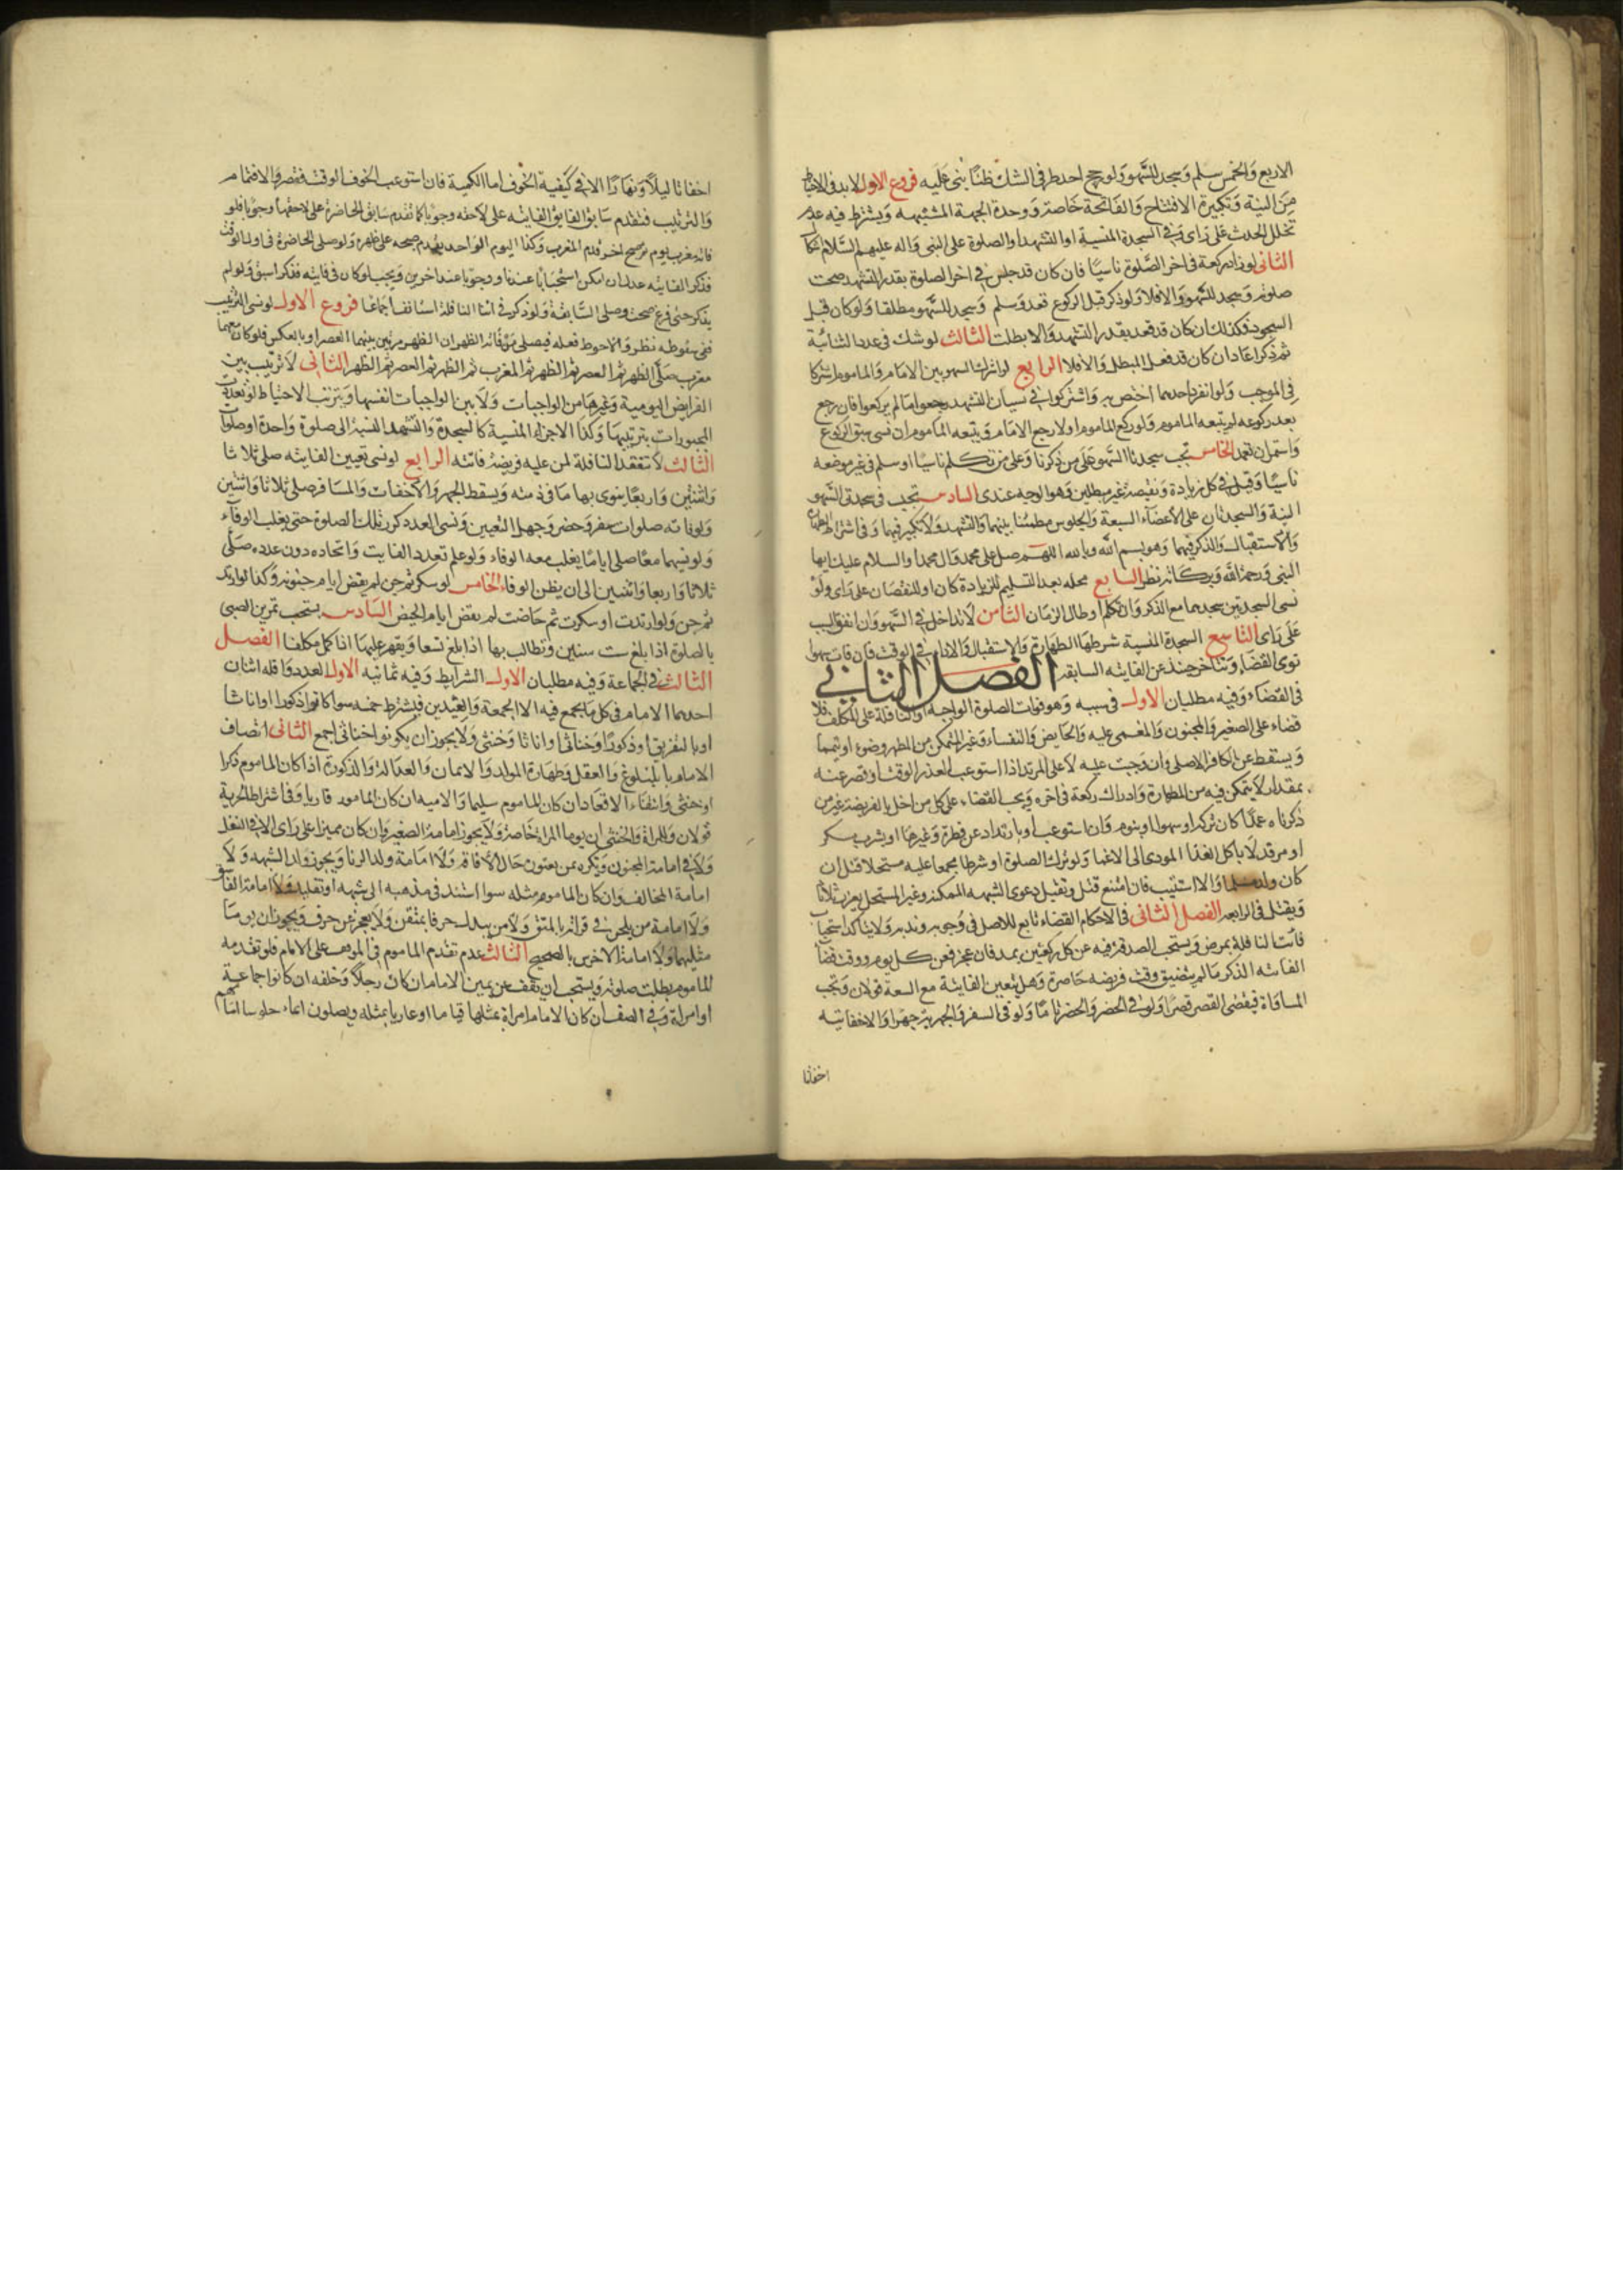 الاربع والخمس سلم وسجد للسهو ولو رجح احد طرفى الشك ظنا بنى عليه فروع الاول لابد فى الاحتياط
من النية وتكبيرة الافتتاح والفاتحة خاصة ووحدة الجهة المشتبهه ويشترط فيه عدم
تخلل الحدث على راى وفى السجدة المنسية او التشهد او الصلوة على النبى واله عليهم السلام
الثانى لو زاد ركعة فى اخر الصلوة ناسيا فان كان قد جلس فى اخر الصلوة بقدر التشهد صحت
صلوته وسجد للسهو والا فلا ولو ذكر قبل الركوع قعد وسلم وسجد للسهو مطلقا ولو كان قبل
السجود فكذلك ان كان قد قعد بقدر التشهد والا بطلت الثالث لو شك فى عدد الثنائية
ثم ذكر اعاد ان كان قد فعل المبطل والا فلا الرابع لو اشترك السهو بين الامام والماموم اشتركا
فى الموجب ولو انفرد احدهما اختص به ولو اشتركوا فى نسيان التشهد رجعوا ما لم يركعوا فان رجع
بعد ركوعه لم يتبعه الماموم ولو ركع الماموم اولا رجع الامام ويتبعه الماموم ان نسى سبق الركوع
واستمر ان تعمد الخامس تجب سجدتا السهو على من ذكرنا وعلى من تكلم ناسيا او سلم فى غير موضعه
ناسيا وقيل فى كل زيادة ونقيصة غير مبطلين وهو الوجه عندى السادس تجب فى سجدتى السهو
النية والسجدتان على الاعضاء السبعة والجلوس مطمئنا بينهما والتشهد ولا تكبير فيهما وفى اشتراط الطهارة
والاستقبال والذكر فيهما وهو بسم الله وبالله اللهم صل على محمد وال محمد او السلام عليك ايها
النبى ورحمة الله وبركاته نظر السابع محله بعد التسليم للزيادة كان او للنقصان على راى ولو
نسى السجدتين سجدهما مع الذكر وان تكلم او طال الزمان الثامن لا تداخل فى السهو وان اتفق السبب
على راى التاسع السجدة المنسية شرطها الطهارة والاستقبال والاداء فى الوقت فان فات سهوا
نوى القضاء وتتاخر حينئذ عن الفايته السابقه الفصل الثانى
فى القضاء وفيه مطلبان الاول فى سببه وهو فوات الصلوة الواجبه او النافلة على المكلف فلا
قضاء على الصغير والمجنون والمغمى عليه والحايض والنفساء وغير المتمكن من المطهر وضوء او تيمما
ويسقط عن الكافر الاصلى وان وجبت عليه لا على المرتد اذا استوعب العذر الوقت او قصر عنه
بمقدار لا يتمكن فيه من الطهارة وادراك ركعة فى اخره ويجب القضاء على كل من اخل بالفريضة غير من
ذكرناه عمدا كان تركه او سهوا او بنوم وان استوعب او بارتداد عن فطرة وغيرها او بشرب مسكر
او مرقد لا باكل الغذا المودى الى الاغما ولو ترك الصلوة او شرطا مجمعا عليه مستحلا قتل ان
كان ولد مسلما والا استتيب فان امتنع قتل وتقبل دعوى الشبهه الممكنه وغير المستحل يعزر ثلاثا
ويقتل فى الرابعه الفصل الثانى فى الاحكام القضاء تابع للاصل فى وجوبه وندبه ولا يتاكد استحباب
فائت النافلة بمرض ويستحب الصدقة فيه عن كل ركعتين بمد فان عجز فعن كل يوم ووقت قضاء
الفائته الذكر ما لم يتضيق وقت فريضه حاضرة وهل تتعين الفايتة مع السعة قولان وتجب
المساواة فيقضى القصر قصرا ولو فى الحضر والحضر تاما ولو فى السفر والجهرية جهرا والاخفاتيه
اخفاتا
اخفاتا ليلا ونهارا الا فى كيفية الخوف اما الكمية فان استوعب الخوف الوقت فقصر والا فتمام
والترتيب فتقدم سابق الفايت الفايته على لاحقه وجوبا كما تقدم سابق الحاضرة على لاحقها وجوبا فلو
فاته مغرب يوم ثم صبح اخر قدم المغرب وكذا اليوم الواحد يقدم صبحه على ظهره ولو صلى الحاضرة فى اول الوقت
فذكر الفايته عدل ان امكن استحبابا عندنا ووجوبا عند اخرين ويجب لو كان فى فايته فذكر اسبق ولو لم
يذكر حتى فرغ صحت وصلى السابقة ولو ذكر فى اثنا النافلة استانف اجماعا فروع الاول لو نسى الترتيب
ففى سقوطه نظر والاحوط فعله فيصلى من فاته الظهران الظهر مرتين بينهما العصر او بالعكس فلو كان معهما
مغرب صلى الظهر ثم العصر ثم الظهر ثم المغرب ثم الظهر ثم العصر ثم الظهر الثانى لا ترتيب بين
الفرايض اليومية وغيرها من الواجبات ولا بين الواجبات انفسها ويترتب الاحتياط لو تعددت
المجبورات بترتيبها وكذا الاجزاء المنسية كالسجدة والتشهد بالنسبة الى صلوة واحدة او صلوات
الثالث لا تنعقد النافلة لمن عليه فريضة فائته الرابع لو نسى تعيين الفايته صلى ثلاثا
واثنتين واربعا ينوى بها ما فى ذمته ويسقط الجهر والاخفات والمسافر صلى ثلاثا واثنتين
ولو فاته صلوات سفر وحضر وجهل التعيين ونسى العدد كرر تلك الصلوة حتى يغلب الوفاء
ولو نسيهما معا صلى اياما يغلب معه الوفاء ولو علم تعدد الفايت واتحاده دون عدده صلى
ثلاثا واربعا واثنتين الى ان يظن الوفاء الخامس لو سكر ثم جن لم يقض ايام جنونه وكذا لو ارتد
ثم جن ولو ارتدت او سكرت ثم حاضت لم يقض ايام الحيض السادس يستحب تمرين الصبى
بالصلوة اذا بلغ ست سنين وتطالب بها اذا بلغ تسعا ويقهر عليها اذا كمل مكلفا الفصل
الثالث فى الجماعة وفيه مطلبان الاول الشرايط وفيه ثمانيه الاول العدد واقله اثنان
احدهما الامام فى كل ما يجمع فيه الا الجمعة والعيدين فيشترط خمسه سواء كانوا ذكورا او اناثا
او بالتفريق او ذكورا وخناثى او اناثا وخنثى ولا يجوز ان يكونوا خناثى اجمع الثانى اتصاف
الامام بالبلوغ والعقل وطهارة المولد والايمان والعدالة والذكورة اذا كان الماموم ذكرا
او خنثى وانتفاء الاقعاد ان كان الماموم سليما والاميه ان كان الماموم قاريا وفى اشتراط الحرية
قولان وللمراة والخنثى ان يوما المراة خاصة ولا يجوز امامة الصغير وان كان مميزا على راى الا فى النفل
ولا فى امامة المجنون ويكره بمن يعتوره حال الافاقة ولا امامة ولد الزنا ويجوز ولد الشبهه ولا
امامة المخالف وان كان الماموم مثله سوا استند فى مذهبه الى شبهه او تقليد ولا امامة الفاسق
ولا امامة من يلحن فى قراته بالمتقن ولا من يبدل حرفا بمتقن ولا يعجز عن حرف ويجوز ان يوما
مثليهما ولا امامة الاخرس بالصحيح الثالث عدم تقدم الماموم فى الموقف على الامام فلو تقدمه
الماموم بطلت صلوته ويستحب ان يقف عن يمين الامام ان كان رجلا وخلفه ان كانوا جماعة
او امراة وفى الصف ان كان الامام امراة بمثلها قياما او عاريا بمثله ويصلون ايماء جلوسا